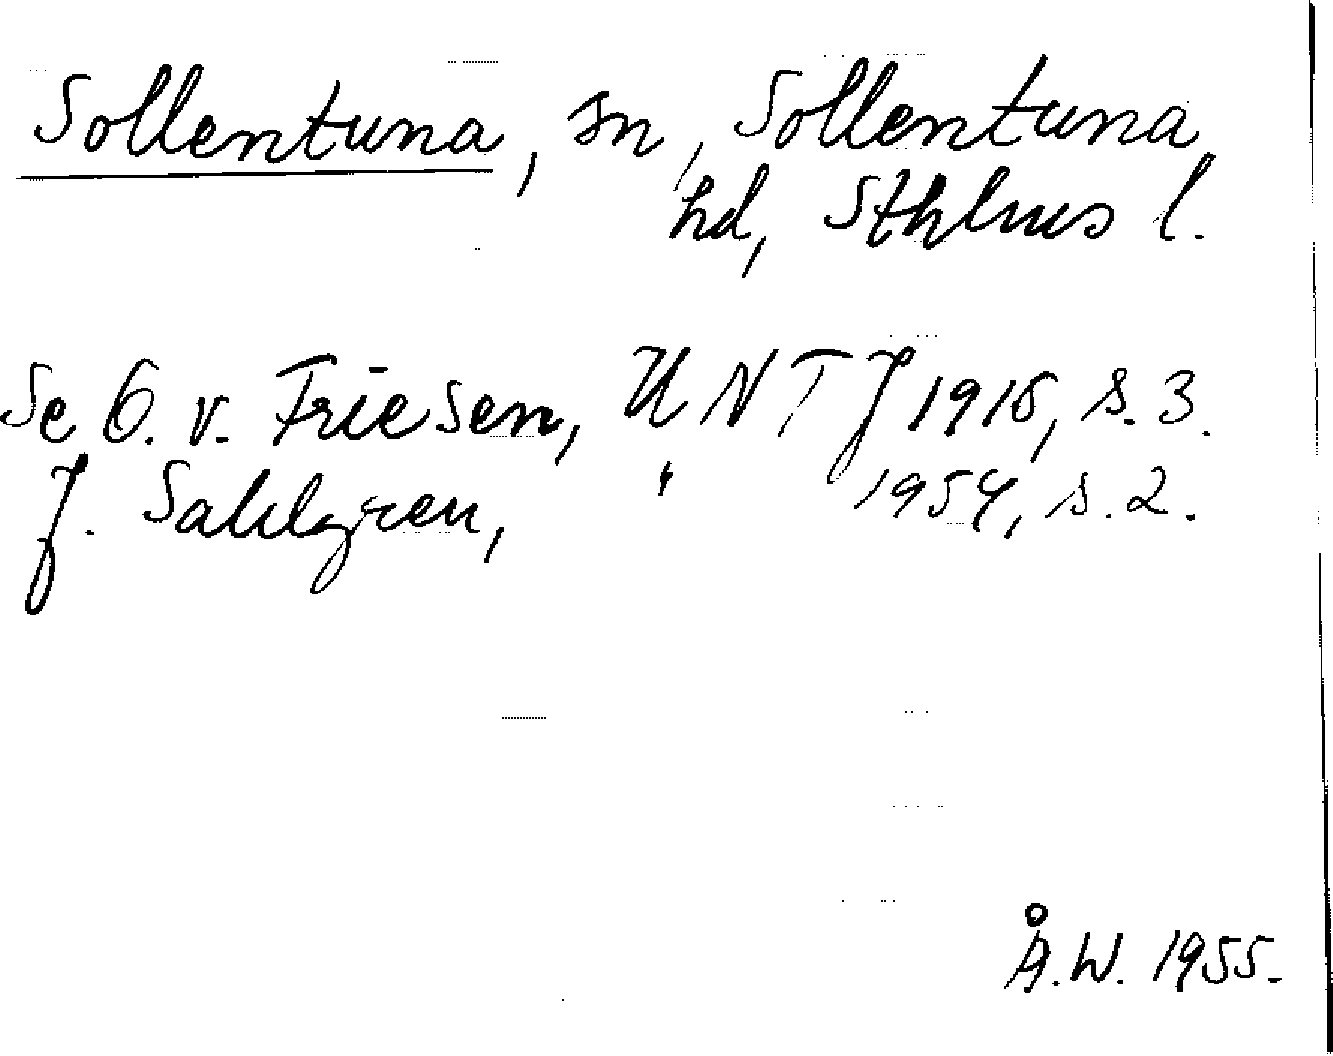 Sollentuna, sn, Sollentuna
hd, Sthlms l.
Se O. v. Friesen, UNTJ 1916, s. 3.
J. Sahlgren, " 1954, s. 2.
Å.W. 1955.